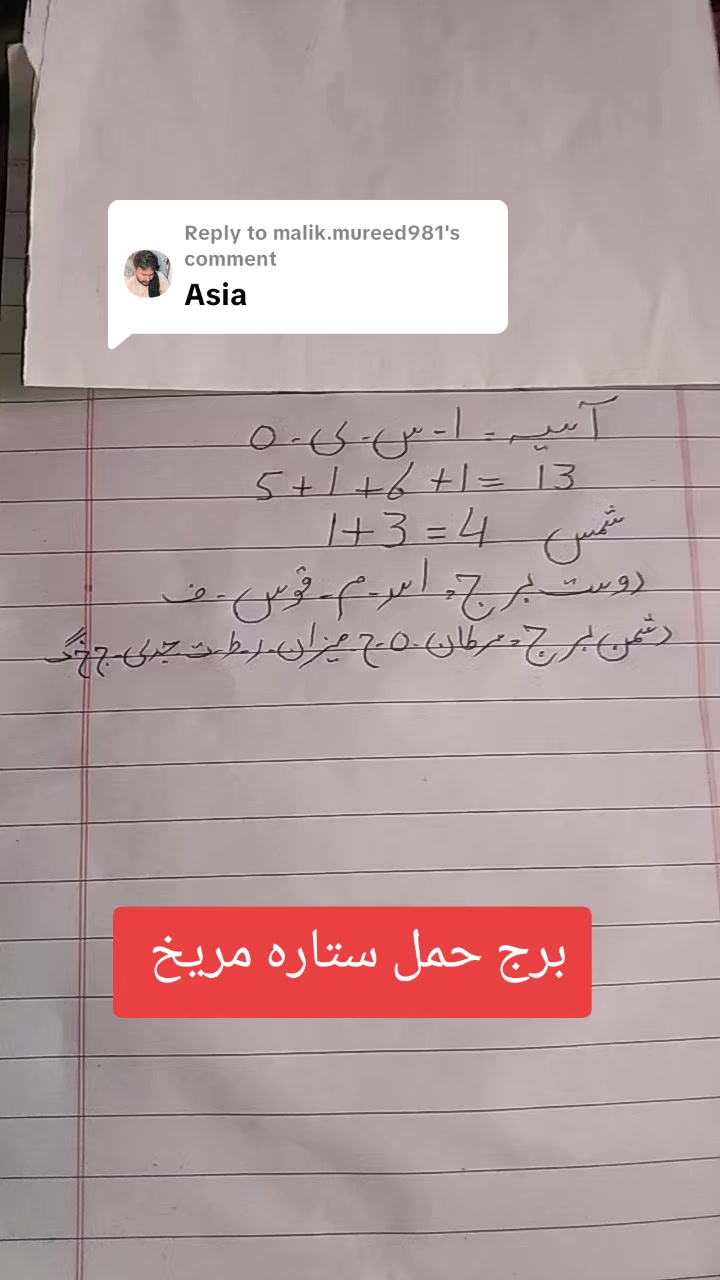 Reply to malik.mureed981's
comment
Asia
آسیہ = ا - س - ی - ہ
5+1+6+1= 13
1+3=4 شمس
دوست برج = اسد - م - قوس - ف
دشمن برج = سرطان - ہ - ح میزان - ر - ط - ت جدی - ج خ گ
برج حمل ستاره مریخ